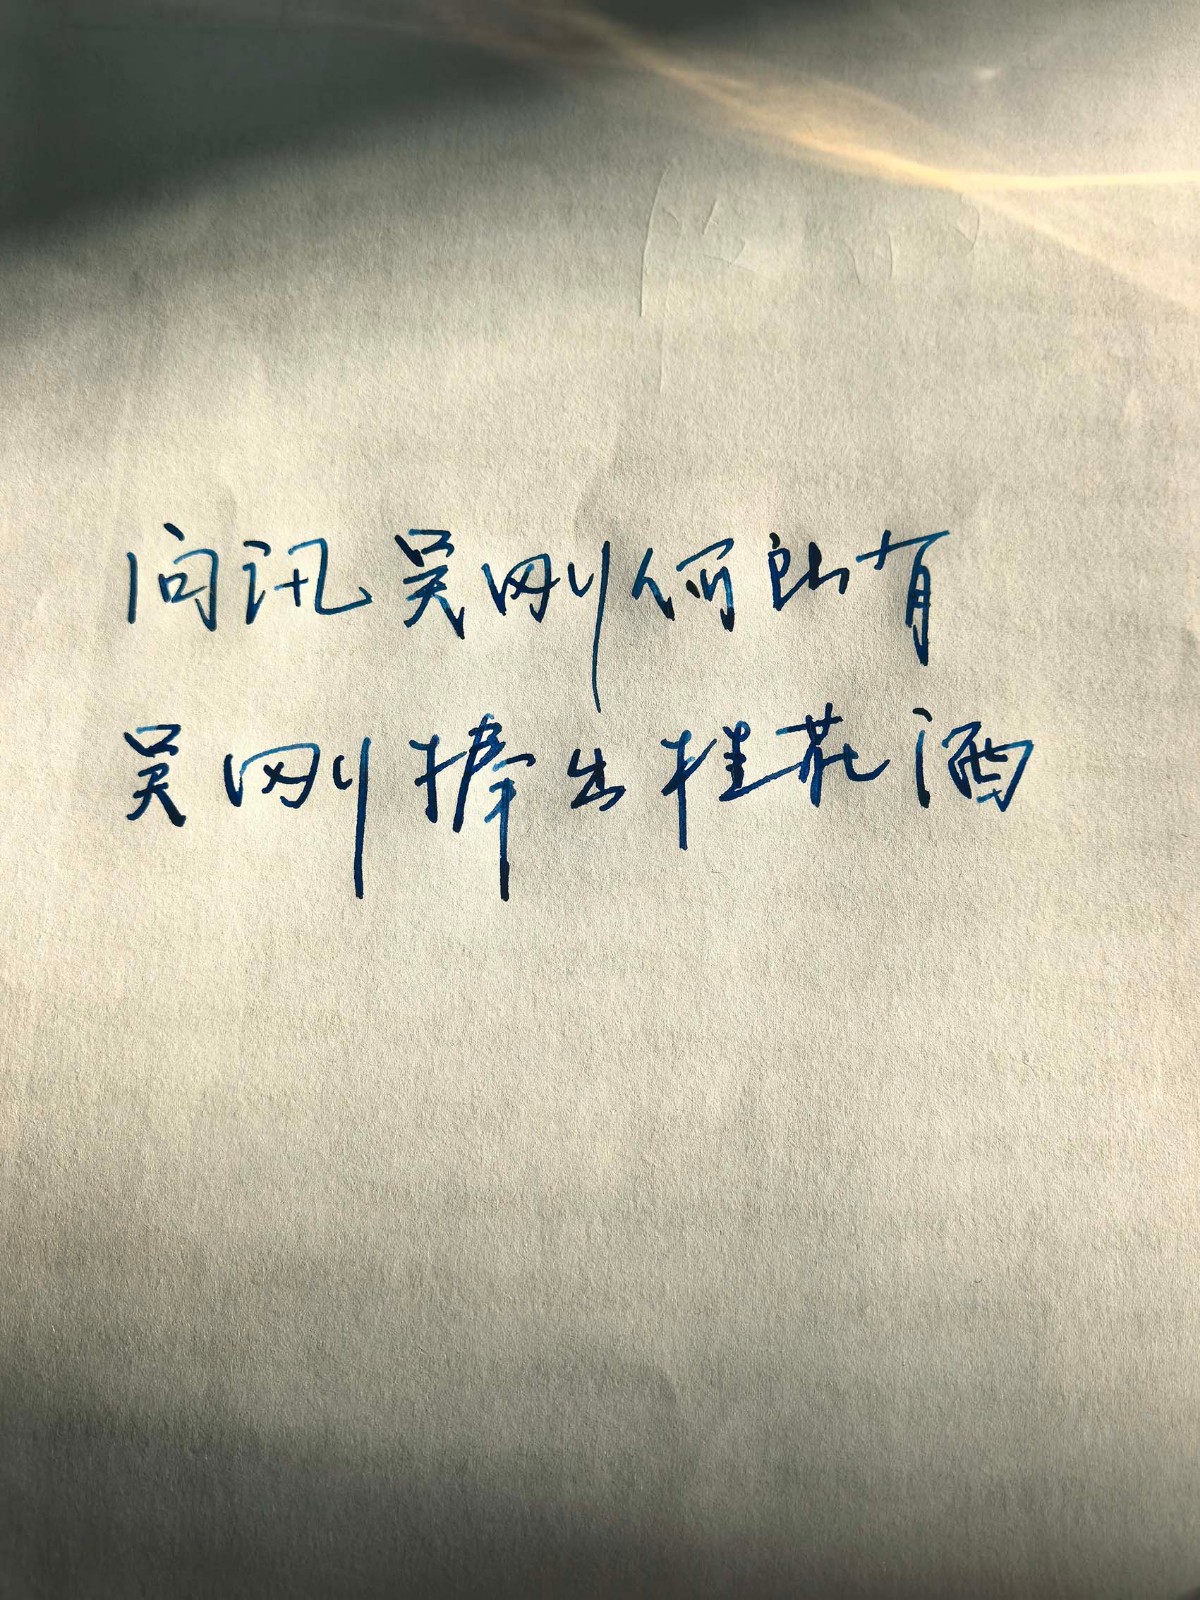 问讯吴刚何所有
吴刚捧出桂花酒